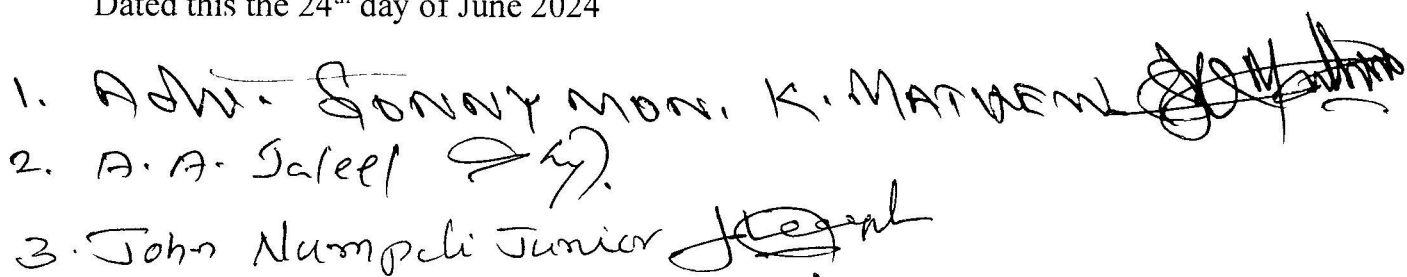 Dated this the 24th day of June 2024
1. Adv. SONNY MON. K. MATHEW
2. A. A. Jaleel
3. John Numpeli Junior